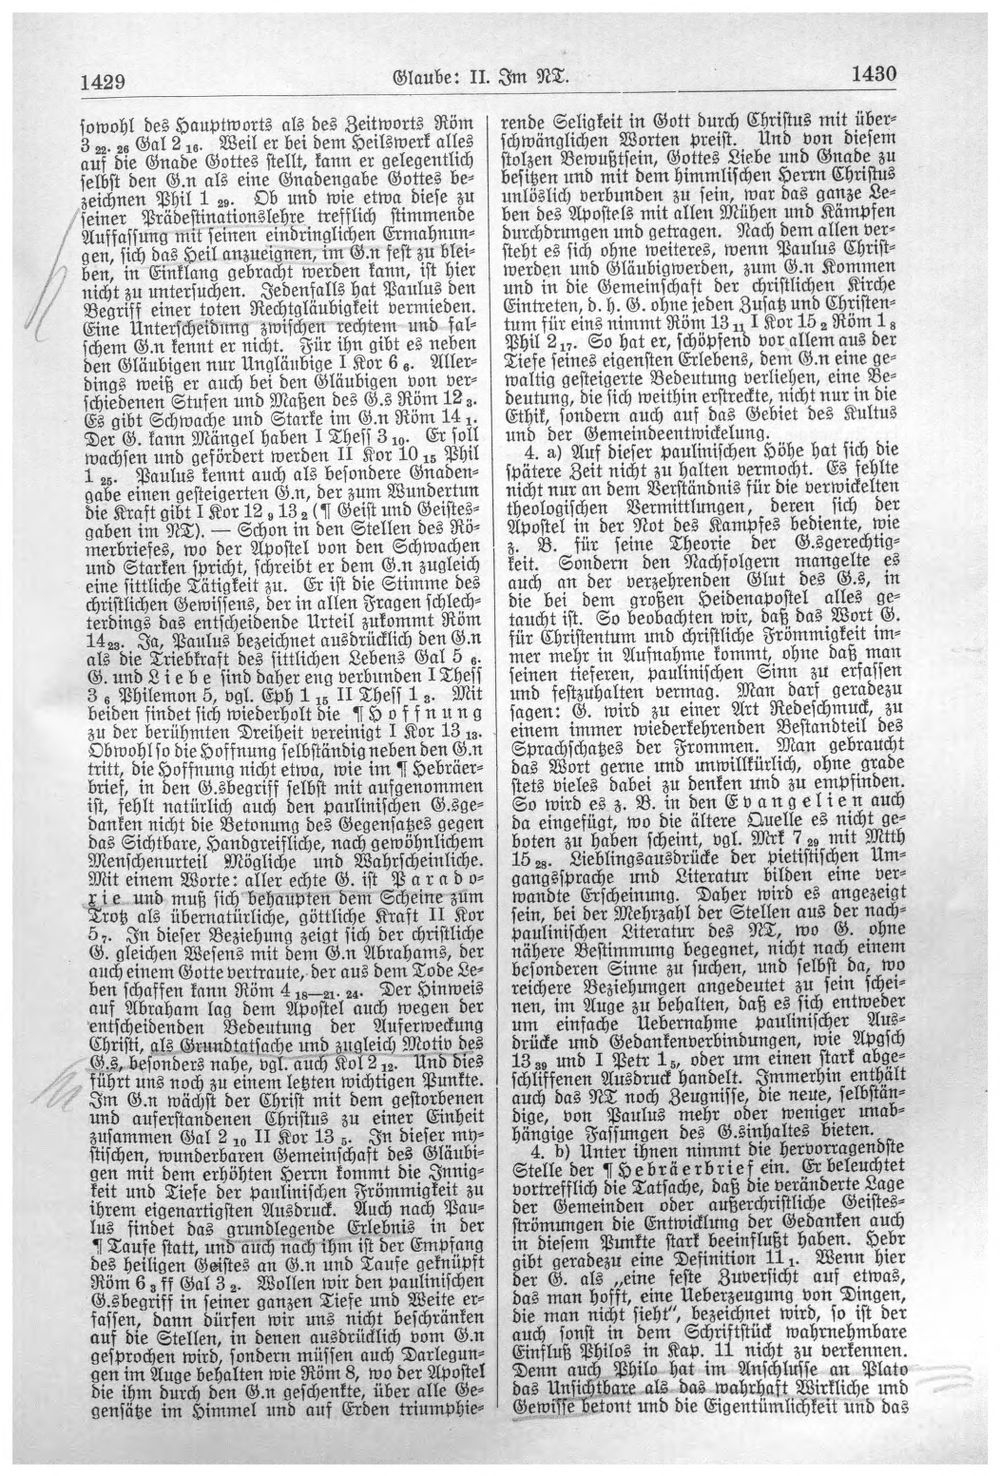 1429
Glaube: II. Im NT.
1430
sowohl des Hauptworts als des Zeitworts Röm
3 22. 26 Gal 2 16. Weil er bei dem Heilswerk alles
auf die Gnade Gottes stellt, kann er gelegentlich
selbst den G.n als eine Gnadengabe Gottes be-
zeichnen Phil 1 29. Ob und wie etwa diese zu
seiner Prädestinationslehre trefflich stimmende
Auffassung mit seinen eindringlichen Ermahnun-
gen, sich das Heil anzueignen, im G.n fest zu blei-
ben, in Einklang gebracht werden kann, ist hier
nicht zu untersuchen. Jedenfalls hat Paulus den
Begriff einer toten Rechtgläubigkeit vermieden.
Eine Unterscheidung zwischen rechtem und fal-
schem G.n kennt er nicht. Für ihn gibt es neben
den Gläubigen nur Ungläubige I Kor 6 6. Aller-
dings weiß er auch bei den Gläubigen von ver-
schiedenen Stufen und Maßen des G.s Röm 12 3.
Es gibt Schwache und Starke im G.n Röm 14 1.
Der G. kann Mängel haben I Thess 3 10. Er soll
wachsen und gefördert werden II Kor 10 15 Phil
1 25. Paulus kennt auch als besondere Gnaden-
gabe einen gesteigerten G.n, der zum Wundertun
die Kraft gibt I Kor 12 9 13 2 (¶ Geist und Geistes-
gaben im NT). — Schon in den Stellen des Rö-
merbriefes, wo der Apostel von den Schwachen
und Starken spricht, schreibt er dem G.n zugleich
eine sittliche Tätigkeit zu. Er ist die Stimme des
christlichen Gewissens, der in allen Fragen schlech-
terdings das entscheidende Urteil zukommt Röm
14 23. Ja, Paulus bezeichnet ausdrücklich den G.n
als die Triebkraft des sittlichen Lebens Gal 5 6.
G. und Liebe sind daher eng verbunden I Thess
3 6 Philemon 5, vgl. Eph 1 15 II Thess 1 3. Mit
beiden findet sich wiederholt die ¶ Hoffnung
zu der berühmten Dreiheit vereinigt I Kor 13 13.
Obwohl so die Hoffnung selbständig neben den G.n
tritt, die Hoffnung nicht etwa, wie im ¶ Hebräer-
brief, in den G.sbegriff selbst mit aufgenommen
ist, fehlt natürlich auch den paulinischen G.sge-
danken nicht die Betonung des Gegensatzes gegen
das Sichtbare, Handgreifliche, nach gewöhnlichem
Menschenurteil Mögliche und Wahrscheinliche.
Mit einem Worte: aller echte G. ist Parado-
xie und muß sich behaupten dem Scheine zum
Trotz als übernatürliche, göttliche Kraft II Kor
5 7. In dieser Beziehung zeigt sich der christliche
G. gleichen Wesens mit dem G.n Abrahams, der
auch einem Gotte vertraute, der aus dem Tode Le-
ben schaffen kann Röm 4 18—21. 24. Der Hinweis
auf Abraham lag dem Apostel auch wegen der
entscheidenden Bedeutung der Auferweckung
Christi, als Grundtatsache und zugleich Motiv des
G.s, besonders nahe, vgl. auch Kol 2 12. Und dies
führt uns noch zu einem letzten wichtigen Punkte.
Im G.n wächst der Christ mit dem gestorbenen
und auferstandenen Christus zu einer Einheit
zusammen Gal 2 10 II Kor 13 5. In dieser my-
stischen, wunderbaren Gemeinschaft des Gläubi-
gen mit dem erhöhten Herrn kommt die Innig-
keit und Tiefe der paulinischen Frömmigkeit zu
ihrem eigenartigsten Ausdruck. Auch nach Pau-
lus findet das grundlegende Erlebnis in der
¶ Taufe statt, und auch nach ihm ist der Empfang
des heiligen Geistes an G.n und Taufe geknüpft
Röm 6 3 ff Gal 3 2. Wollen wir den paulinischen
G.sbegriff in seiner ganzen Tiefe und Weite er-
fassen, dann dürfen wir uns nicht beschränken
auf die Stellen, in denen ausdrücklich vom G.n
gesprochen wird, sondern müssen auch Darlegun-
gen im Auge behalten wie Röm 8, wo der Apostel
die ihm durch den G.n geschenkte, über alle Ge-
gensätze im Himmel und auf Erden triumphie-
rende Seligkeit in Gott durch Christus mit über-
schwänglichen Worten preist. Und von diesem
stolzen Bewußtsein, Gottes Liebe und Gnade zu
besitzen und mit dem himmlischen Herrn Christus
unlöslich verbunden zu sein, war das ganze Le-
ben des Apostels mit allen Mühen und Kämpfen
durchdrungen und getragen. Nach dem allen ver-
steht es sich ohne weiteres, wenn Paulus Christ-
werden und Gläubigwerden, zum G.n Kommen
und in die Gemeinschaft der christlichen Kirche
Eintreten, d. h. G. ohne jeden Zusatz und Christen-
tum für eins nimmt Röm 13 11 I Kor 15 2 Röm 1 8
Phil 2 17. So hat er, schöpfend vor allem aus der
Tiefe seines eigensten Erlebens, dem G.n eine ge-
waltig gesteigerte Bedeutung verliehen, eine Be-
deutung, die sich weithin erstreckte, nicht nur in die
Ethik, sondern auch auf das Gebiet des Kultus
und der Gemeindeentwickelung.
4. a) Auf dieser paulinischen Höhe hat sich die
spätere Zeit nicht zu halten vermocht. Es fehlte
nicht nur an dem Verständnis für die verwickelten
theologischen Vermittlungen, deren sich der
Apostel in der Not des Kampfes bediente, wie
z. B. für seine Theorie der G.sgerechtig-
keit. Sondern den Nachfolgern mangelte es
auch an der verzehrenden Glut des G.s, in
die bei dem großen Heidenapostel alles ge-
taucht ist. So beobachten wir, daß das Wort G.
für Christentum und christliche Frömmigkeit im-
mer mehr in Aufnahme kommt, ohne daß man
seinen tieferen, paulinischen Sinn zu erfassen
und festzuhalten vermag. Man darf geradezu
sagen: G. wird zu einer Art Redeschmuck, zu
einem immer wiederkehrenden Bestandteil des
Sprachschatzes der Frommen. Man gebraucht
das Wort gerne und unwillkürlich, ohne grade
stets vieles dabei zu denken und zu empfinden.
So wird es z. B. in den Evangelien auch
da eingefügt, wo die ältere Quelle es nicht ge-
boten zu haben scheint, vgl. Mrk 7 29 mit Mtth
15 28. Lieblingsausdrücke der pietistischen Um-
gangssprache und Literatur bilden eine ver-
wandte Erscheinung. Daher wird es angezeigt
sein, bei der Mehrzahl der Stellen aus der nach-
paulinischen Literatur des NT, wo G. ohne
nähere Bestimmung begegnet, nicht nach einem
besonderen Sinne zu suchen, und selbst da, wo
reichere Beziehungen angedeutet zu sein schei-
nen, im Auge zu behalten, daß es sich entweder
um einfache Uebernahme paulinischer Aus-
drücke und Gedankenverbindungen, wie Apgsch
13 39 und I Petr 1 5, oder um einen stark abge-
schliffenen Ausdruck handelt. Immerhin enthält
auch das NT noch Zeugnisse, die neue, selbstän-
dige, von Paulus mehr oder weniger unab-
hängige Fassungen des G.sinhaltes bieten.
4. b) Unter ihnen nimmt die hervorragendste
Stelle der ¶ Hebräerbrief ein. Er beleuchtet
vortrefflich die Tatsache, daß die veränderte Lage
der Gemeinden oder außerchristliche Geistes-
strömungen die Entwicklung der Gedanken auch
in diesem Punkte stark beeinflußt haben. Hebr
gibt geradezu eine Definition 11 1. Wenn hier
der G. als „eine feste Zuversicht auf etwas,
das man hofft, eine Ueberzeugung von Dingen,
die man nicht sieht“, bezeichnet wird, so ist der
auch sonst in dem Schriftstück wahrnehmbare
Einfluß Philos in Kap. 11 nicht zu verkennen.
Denn auch Philo hat im Anschlusse an Plato
das Unsichtbare als das wahrhaft Wirkliche und
Gewisse betont und die Eigentümlichkeit und das